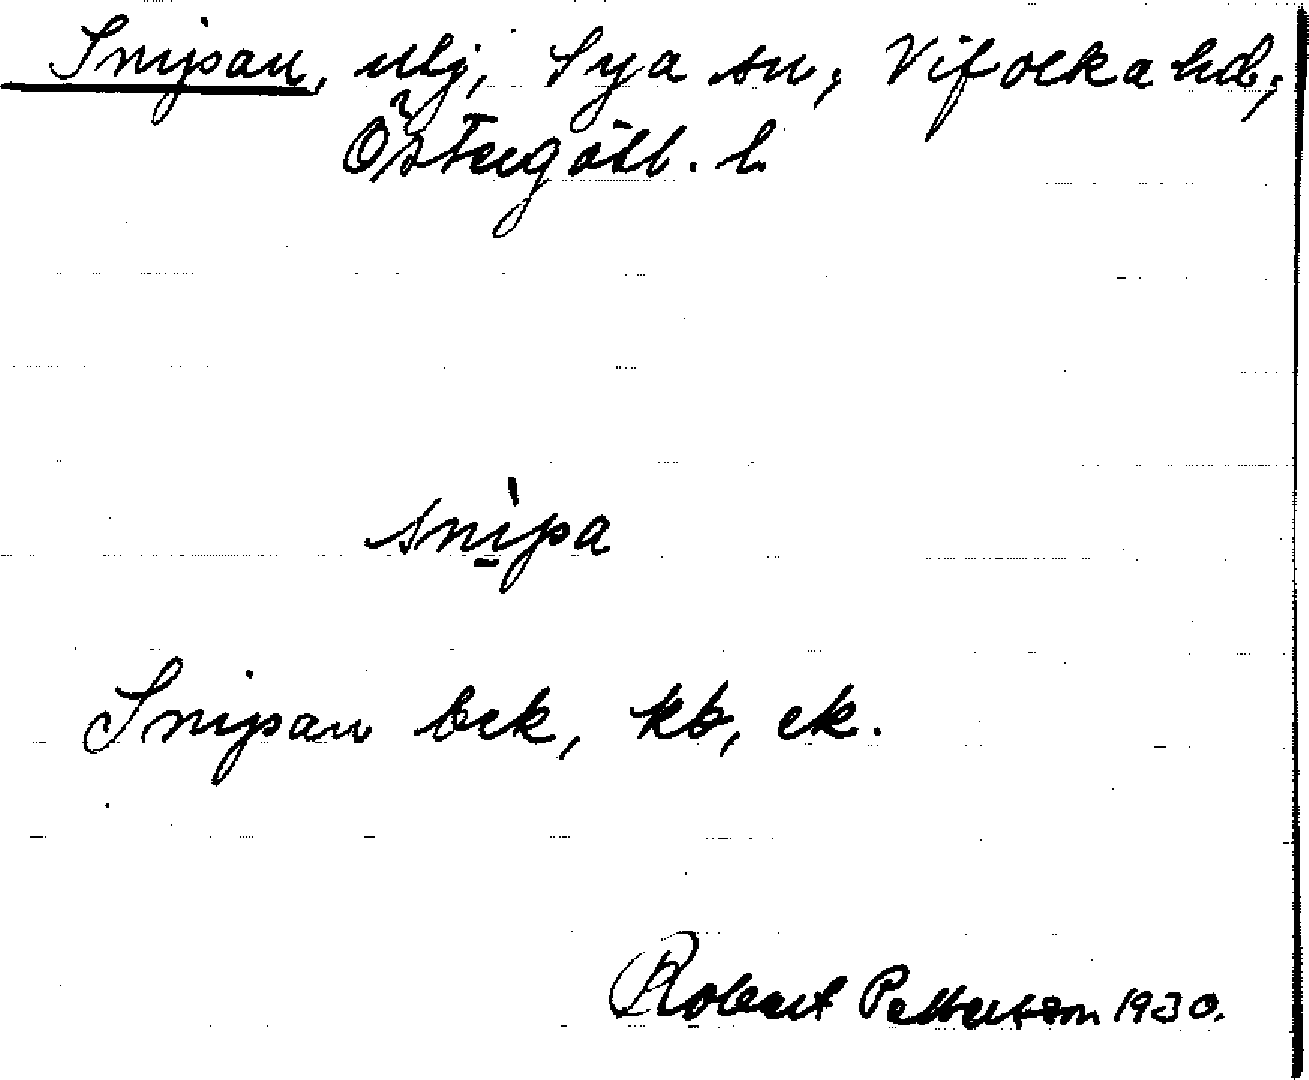 Snipan, ulj, Sya sn, Vifolka hd,
Östergötl. l.
snìpa
Snipan bek, kb, ek.
Robert Pettersson 1930.